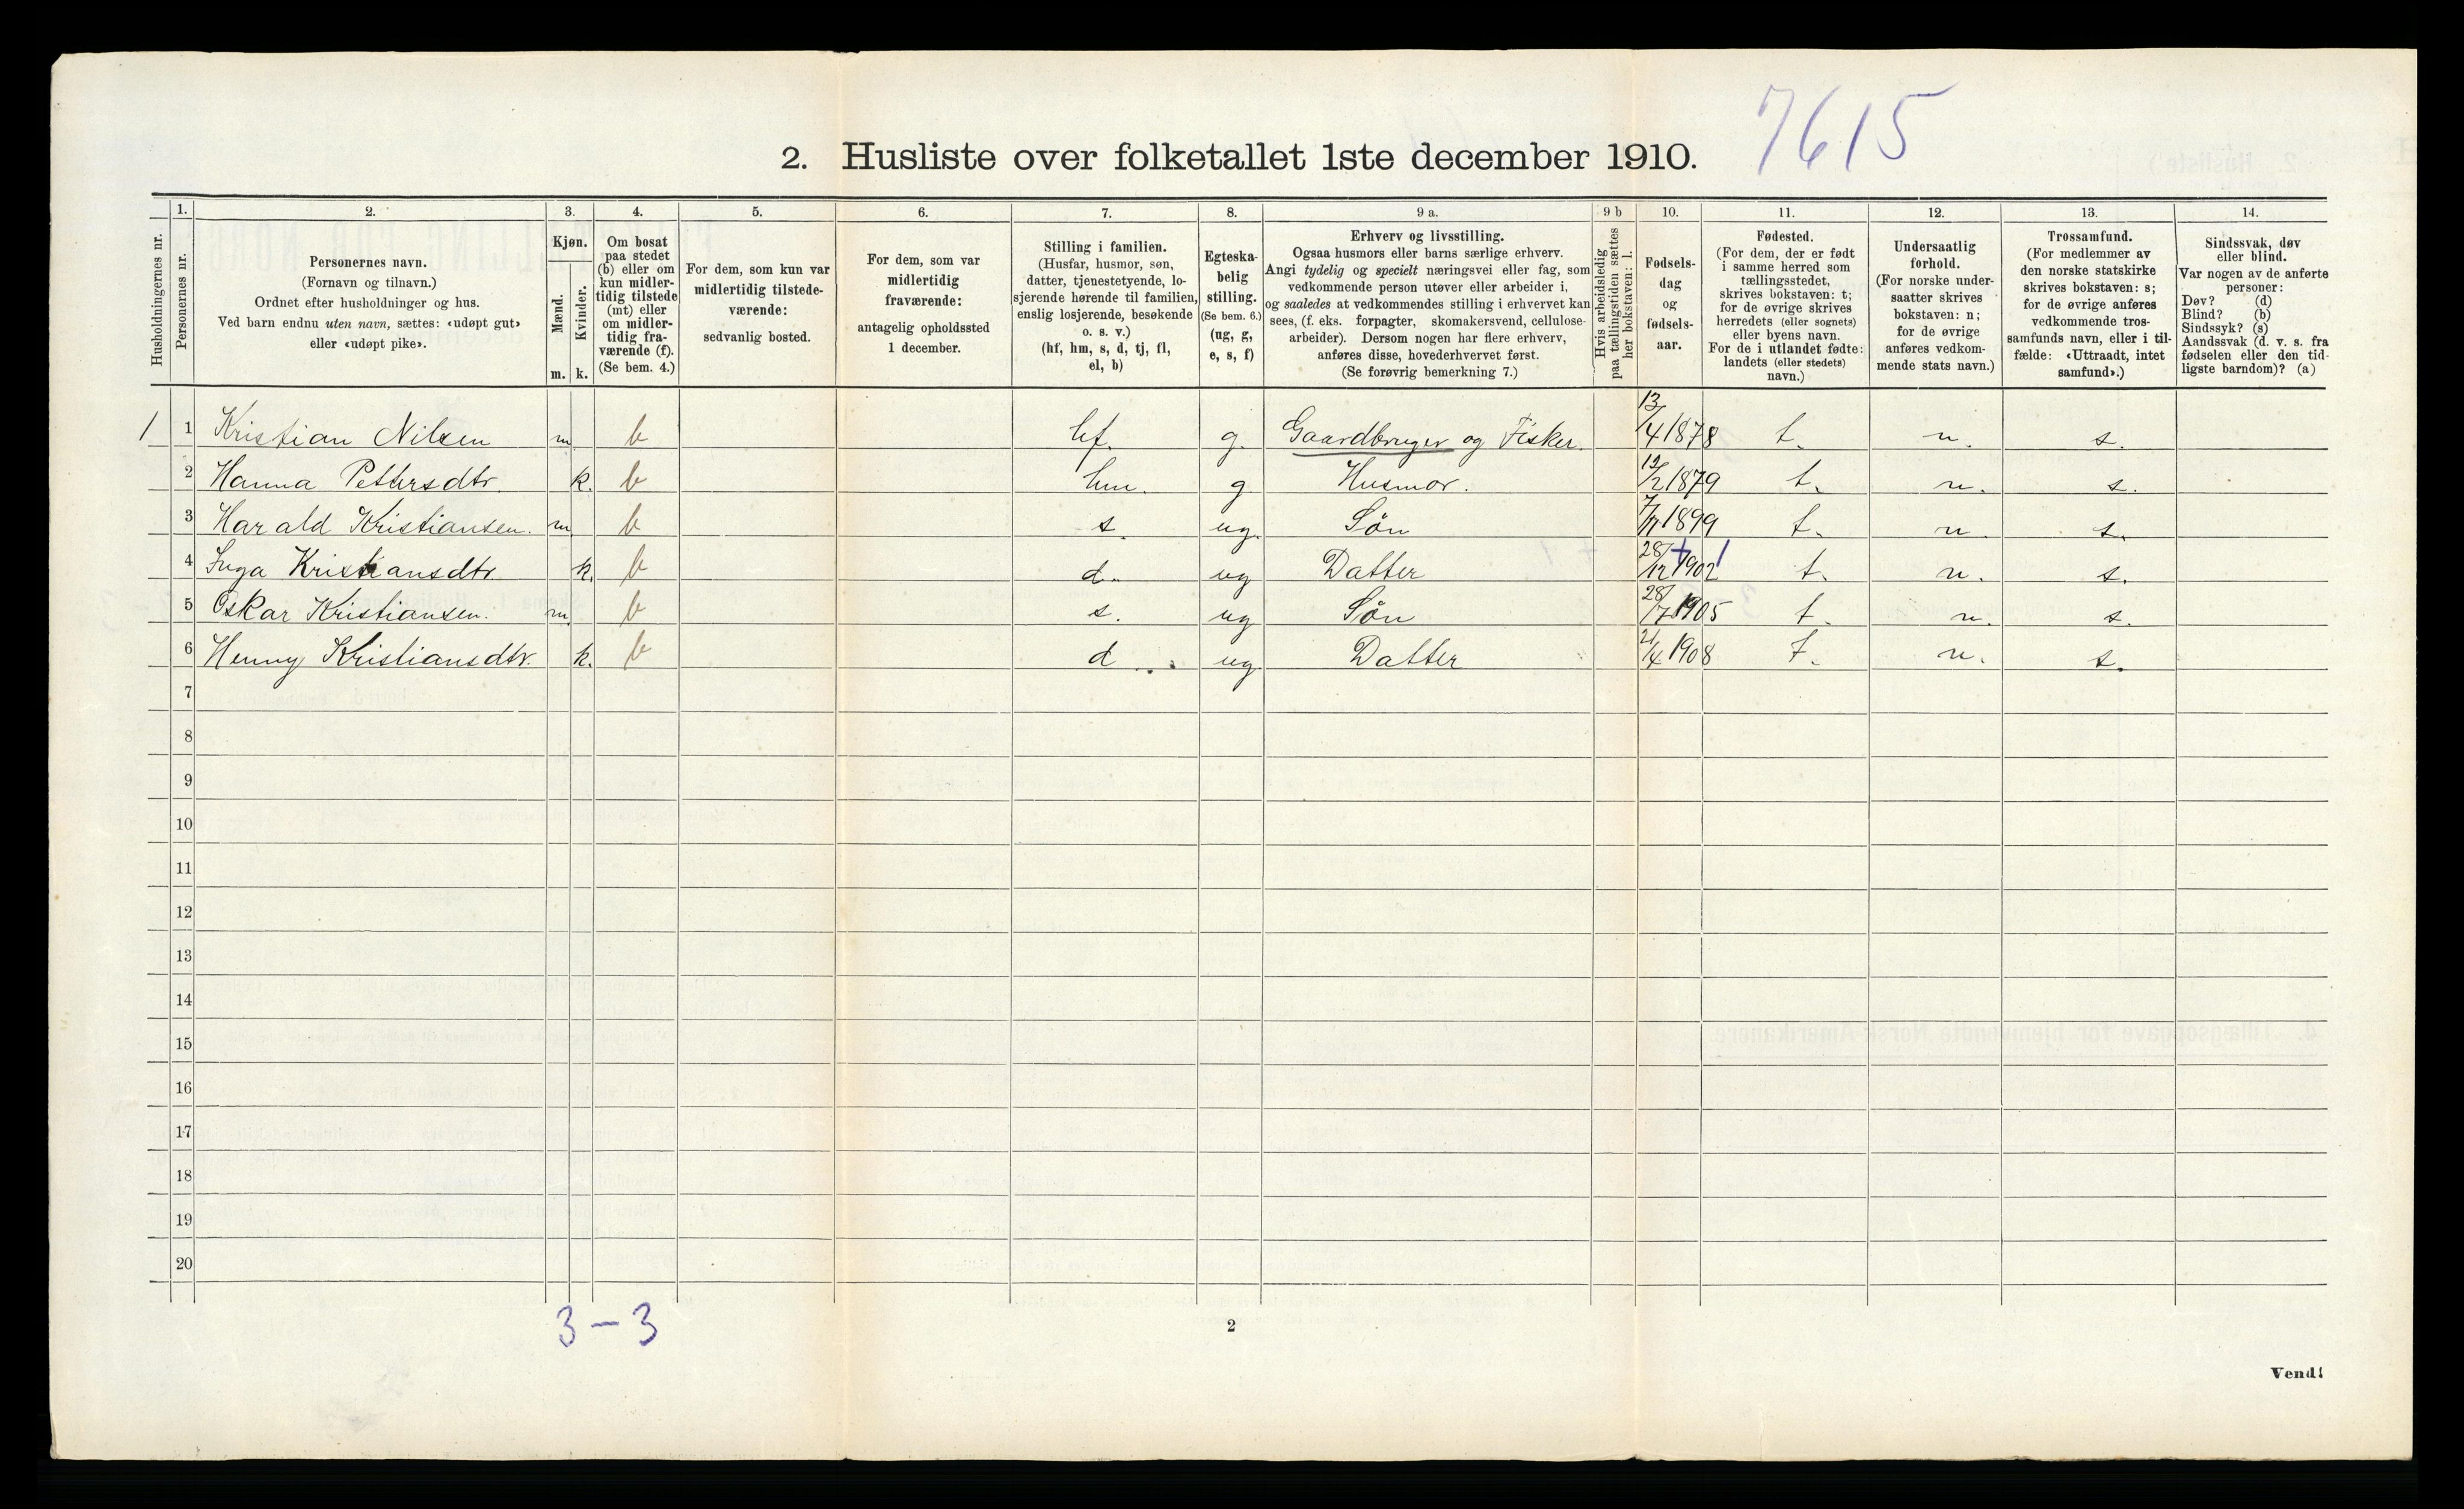 7615
2. Husliste over folketallet 1ste december 1910.
Husholdningernes nr.
1.
Personernes nr.
2.
Personernes navn.
(Fornavn og tilnavn.)
Ordnet efter husholdninger og hus.
Ved barn endnu uten navn, sættes: «udøpt gut»
eller «udøpt pike».
3.
Kjøn.
Mænd.
Kvinder.
m.
k.
4.
Om bosat
paa stedet
(b) eller om
kun midler-
tidig tilstede
(mt) eller
om midler-
tidig fra-
værende (f).
(Se bem. 4.)
5.
For dem, som kun var
midlertidig tilstede-
værende:
sedvanlig bosted.
6.
For dem, som var
midlertidig
fraværende:
antagelig opholdssted
1 december.
7.
Stilling i familien.
(Husfar, husmor, søn,
datter, tjenestetyende, lo-
sjerende hørende til familien,
enslig losjerende, besøkende
o. s. v.)
(hf, hm, s, d, tj, fl,
el, b)
8.
Egteska-
belig
stilling.
(Se bem. 6.)
(ug, g,
e, s, f)
9 a.
Erhverv og livsstilling.
Ogsaa husmors eller barns særlige erhverv.
Angi tydelig og specielt næringsvei eller fag, som
vedkommende person utøver eller arbeider i,
og saaledes at vedkommendes stilling i erhvervet kan
sees, (f. eks. forpagter, skomakersvend, cellulose-
arbeider). Dersom nogen har flere erhverv,
anføres disse, hovederhvervet først.
(Se forøvrig bemerkning 7.)
9 b
Hvis arbeidsledig
paa tællingstiden sættes
her bokstaven: l.
10.
Fødsels-
dag
og
fødsels-
aar.
11.
Fødested.
(For dem, der er født
i samme herred som
tællingsstedet,
skrives bokstaven: t;
for de øvrige skrives
herredets (eller sognets)
eller byens navn.
For de i utlandet fødte:
landets (eller stedets)
navn.)
12.
Undersaatlig
forhold.
(For norske under-
saatter skrives
bokstaven: n;
for de øvrige
anføres vedkom-
mende stats navn.)
13.
Trossamfund.
(For medlemmer av
den norske statskirke
skrives bokstaven: s;
for de øvrige anføres
vedkommende tros-
samfunds navn, eller i til-
fælde: «Uttraadt, intet
samfund».)
14.
Sindssvak, døv
eller blind.
Var nogen av de anførte
personer:
Døv? (d)
Blind? (b)
Sindssyk? (s)
Aandssvak (d. v. s. fra
fødselen eller den tid-
ligste barndom)? (a)
1 1 Kristian Nilsen m b hf. g. Gaardbruger og Fisker. 13/4 1878 t. n. s.
2 Hanna Pettersdtr. k. b hm. g Husmor. 12/2 1879 t. n. s.
3 Harald Kristiansen. m b s. ug. Søn 7/11 1899 t. n. s.
4 Inga Kristiansdtr k. b d. ug Datter 28/12 1902 + 1 t. n. s.
5 Oskar Kristiansen. m b s. ug Søn 28/7 1905 t. n. s.
6 Henny Kristiansdtr. k. b d ug. Datter 21/4 1908 t. n. s.
7
8
9
10
11
12
13
14
15
16
17
18
19
20
3 – 3
2
Vend!